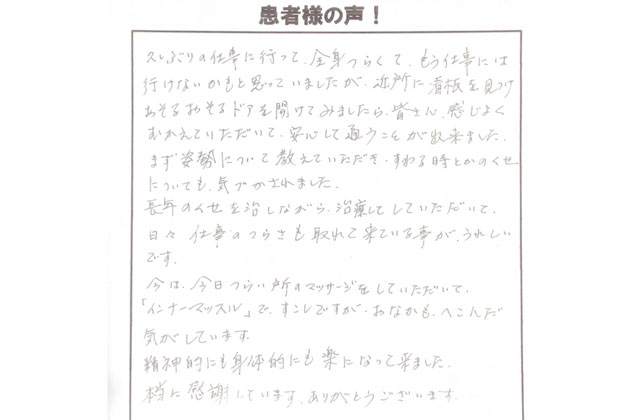 患者様の声！
久しぶりの仕事に行って、全身つらくて、もう仕事には
行けないかもと思っていましたが、近所に看板を見つけ
おそるおそるドアを開けてみましたら、皆さん、感じよく
むかえていただいて、安心して通うことが出来ました。
まず姿勢について教えていただき、すわる時とかのくせ
についても、気づかされました。
長年のくせを治しながら、治療してしていただいて、
日々仕事のつらさも取れて来ている事が、うれしい
です。
今は、今日つらい所のマッサージをしていただいて、
「インナーマッスル」で、すこしですが、おなかも、へこんだ
気がしています。
精神的にも身体的にも楽になって来ました。
本当に感謝しています。ありがとうございます。